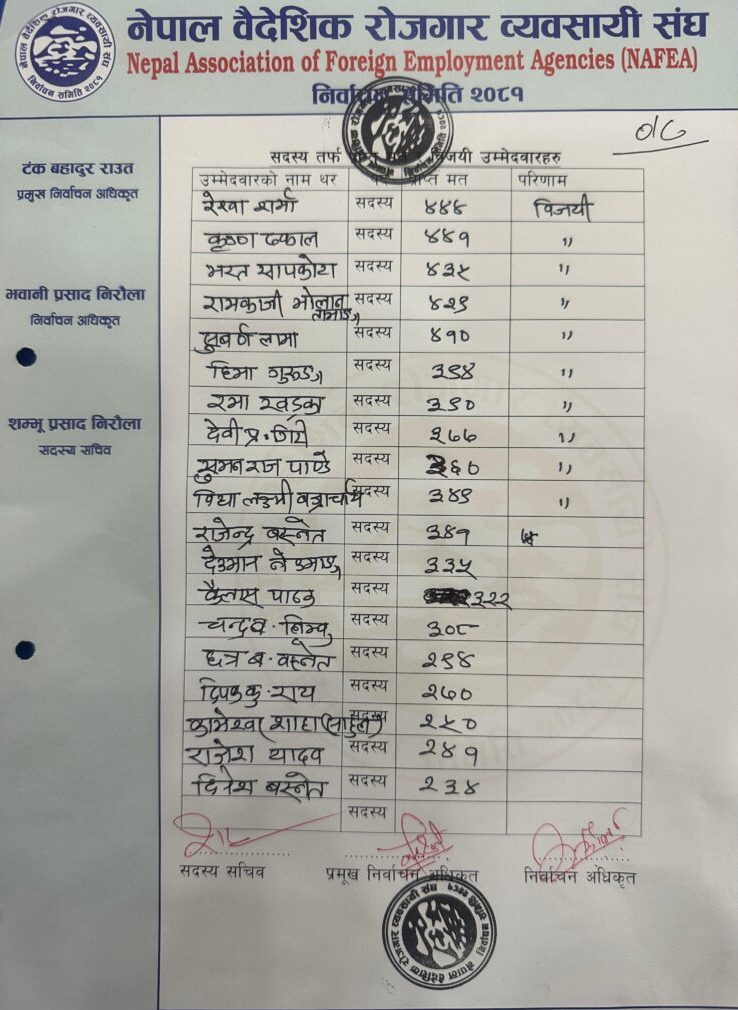 नेपाल वैदेशिक रोजगार व्यवसायी संघ
Nepal Association of Foreign Employment Agencies (NAFEA)
निर्वाचन समिति २०८१
टंक बहादुर राउत
प्रमुख निर्वाचन अधिकृत
भवानी प्रसाद निरौला
निर्वाचन अधिकृत
शम्भू प्रसाद निरौला
सदस्य सचिव
सदस्य तर्फ विजयी उम्मेदवारहरु
उम्मेदवारको नाम थर प्राप्त मत परिणाम
रेखा शर्मा सदस्य ४४४ विजयी
कृष्ण ढकाल सदस्य ४४१ "
भरत सापकोटा सदस्य ४३५ "
रामकाजी भोलान तामाङ सदस्य ४२९ "
सुवर्ण लामा सदस्य ४१० "
हिमा गुरुङ सदस्य ३९४ "
रमा खड्का सदस्य ३९० "
देवी प्र. गिरी सदस्य "
सुमन राज पाण्डे सदस्य ३६० "
विद्या लक्ष्मी वज्राचार्य सदस्य ३४९ "
राजेन्द्र बस्नेत सदस्य ३४१
सदस्य ३३५
कैलास पाठक सदस्य ३२२
चन्द्र ब. लिम्बु सदस्य ३०८
छत्र ब. वस्नेत सदस्य २९४
दिपक कु. राय सदस्य २७०
कामेश्वर शाहा (राहुल) सदस्य २५०
राजेश यादव सदस्य २४१
दिनेश बस्नेत सदस्य २३४
सदस्य
सदस्य सचिव प्रमुख निर्वाचन अधिकृत निर्वाचन अधिकृत